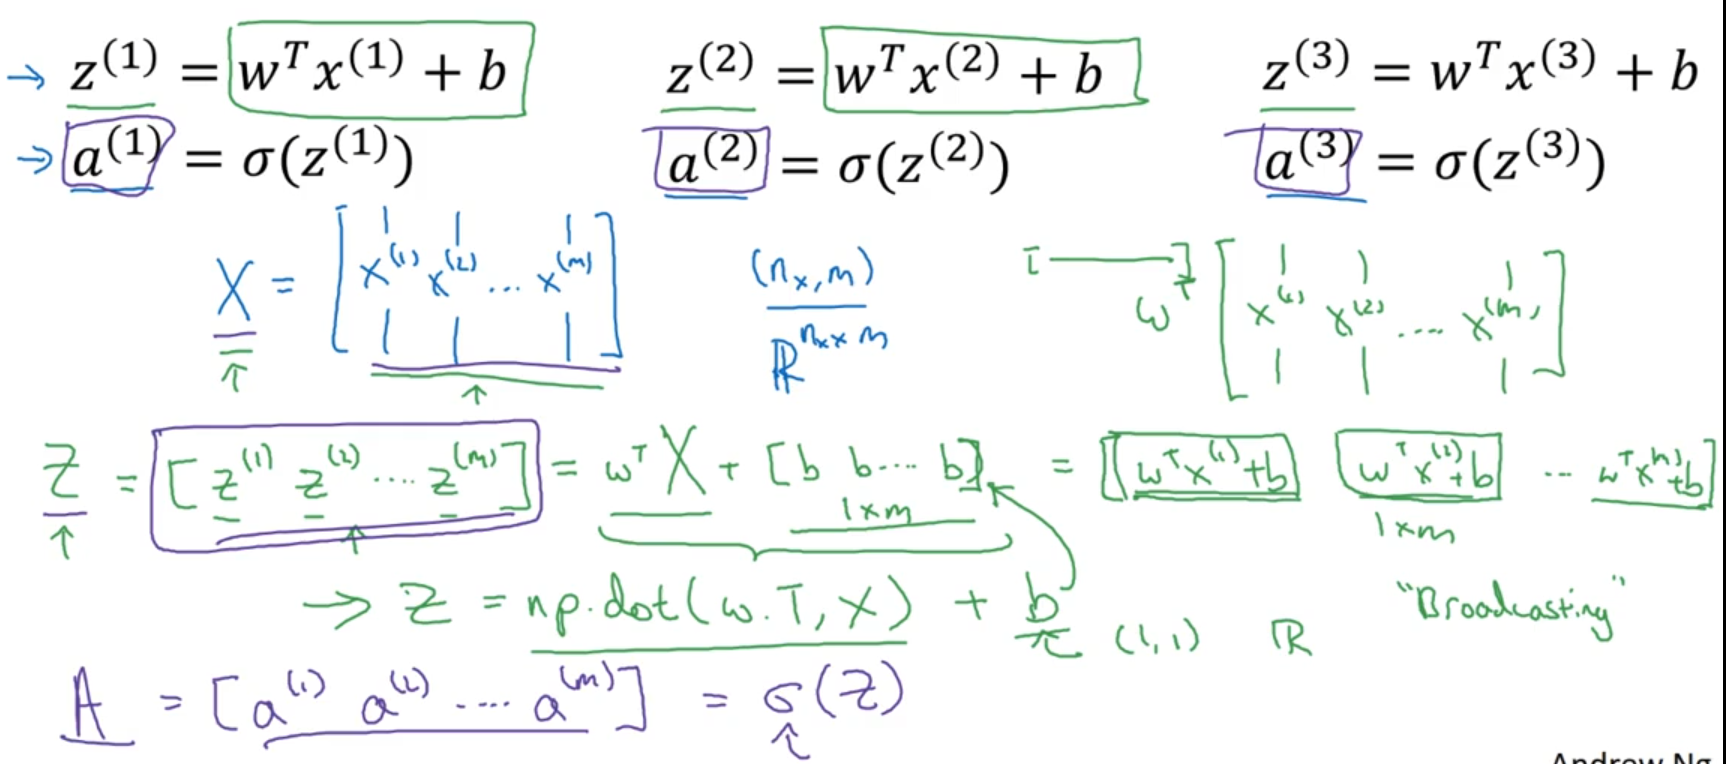 → z^(1) = w^T x^(1) + b    z^(2) = w^T x^(2) + b    z^(3) = w^T x^(3) + b
→ a^(1) = σ(z^(1))    a^(2) = σ(z^(2))    a^(3) = σ(z^(3))
X = [x^(1) x^(2) ... x^(m)]    (n_x, m)    ℝ^(n_x × m)    w^T [x^(1) x^(2) .... x^(m)]
Z = [z^(1) z^(2) .... z^(m)] = w^T X + [b b ... b] = [w^T x^(1)+b    w^T x^(2)+b ... w^T x^(m)+b]
1×m    1×m
→ Z = np.dot(w.T, X) + b    (1,1)    ℝ    "Broadcasting"
A = [a^(1) a^(2) .... a^(m)] = σ(Z)
Andrew Ng